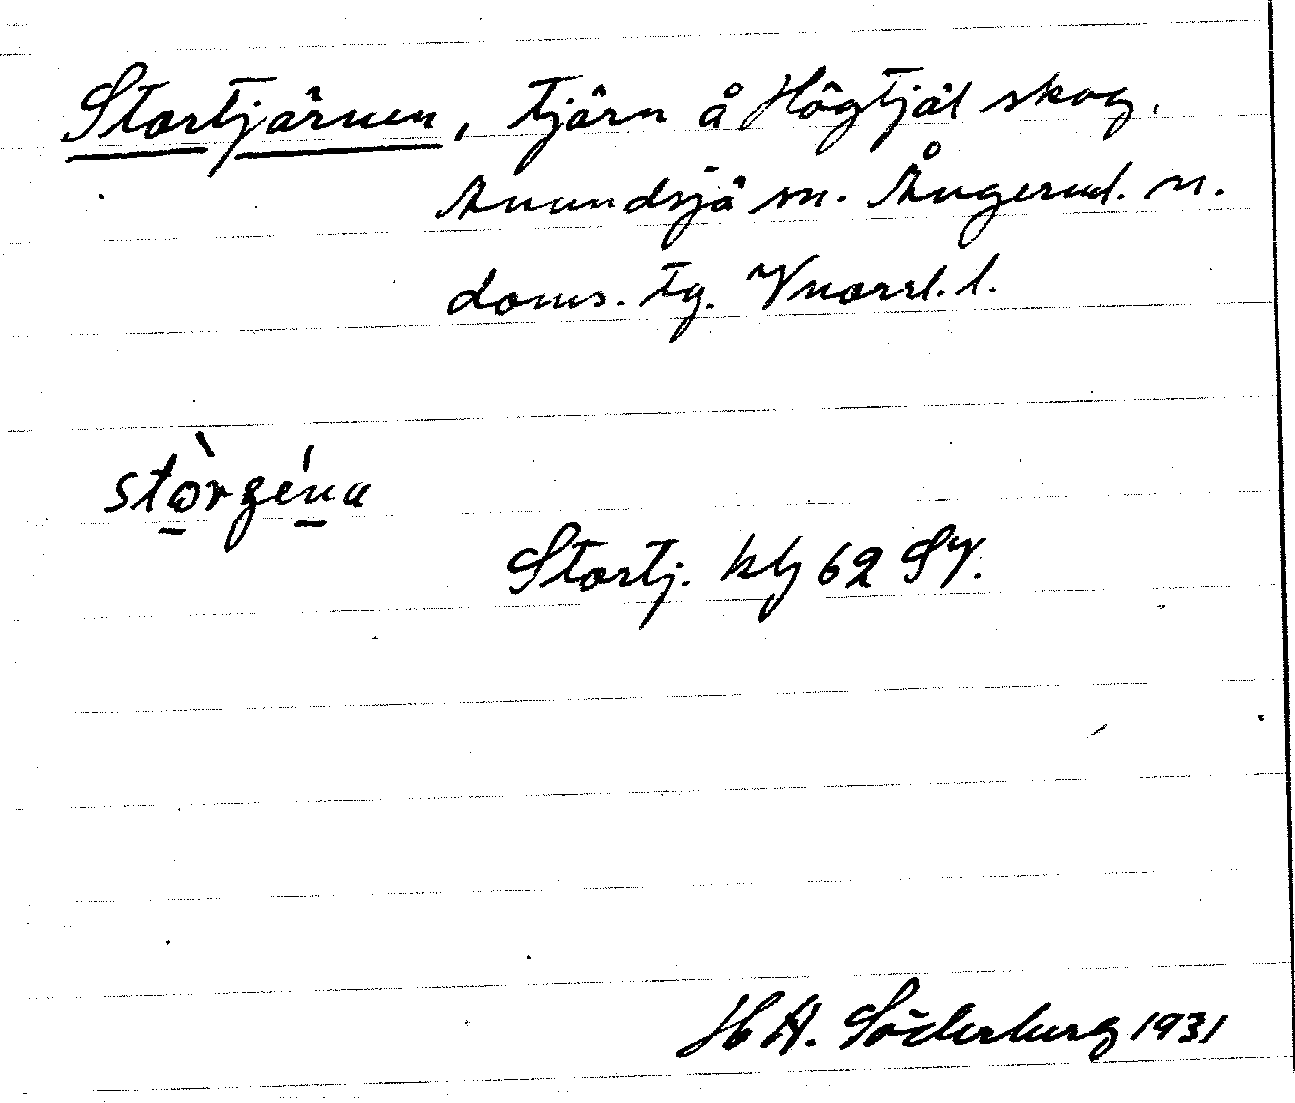 Stortjärnen, tjärn å Högtjäl skog,
Anundsjö sn. Ångerml. n.
doms. tg. Vnorrl. l.
stòrgéna
Stortj. kbl 62 SV.
H A. Söderberg 1931